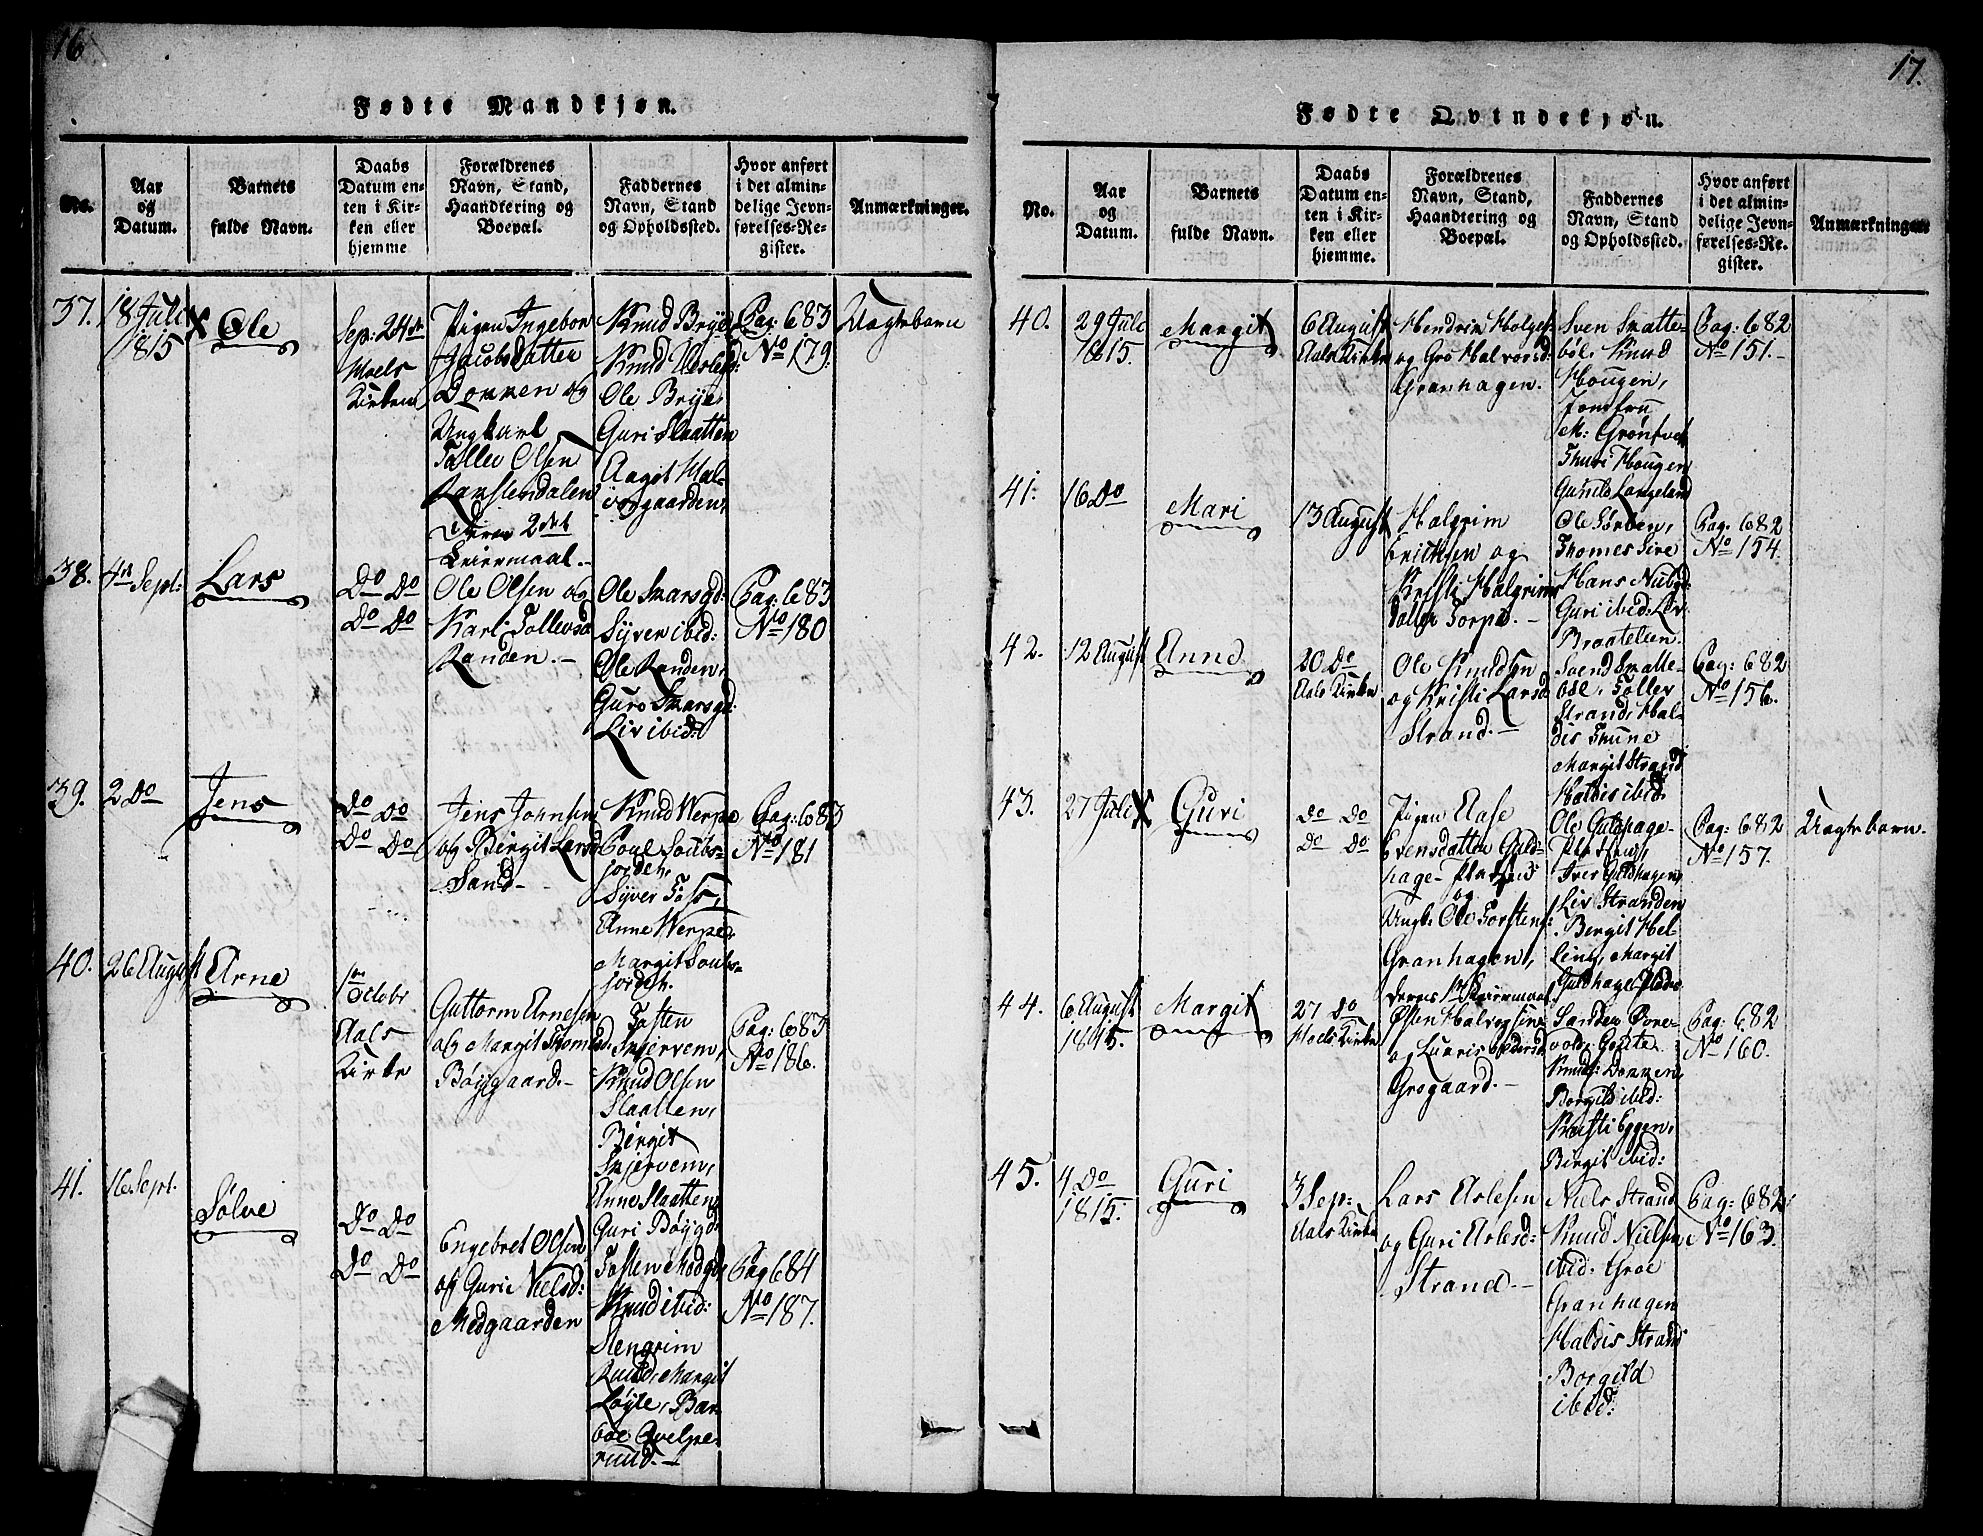 16
Fødte Mandkjøn.
No.
Aar
og
Datum.
Barnets
fulde Navn.
Daabs
Datum en-
ten i Kir-
ken eller
hjemme
Forældrenes
Navn, Stand,
Haandtering og
Boepæl.
Faddernes
Navn, Stand
og Opholdssted.
Hvor anført
i det almin-
delige Jevn-
førelses-Re-
gister.
Anmærkninger.
37.
18 Juli
1815
X Ole
Sep: 24de
Hoels
Kirken
Pigen Ingebor
Jacobsdatten
Dokken og
Ungkarl
Tollev Olsen
Deres 2det
Leiermaal.
Knud Brye
Ole Brye,
Guri Slaatten
Aagot Hal-
vorgaarden,
Pag: 683
No 179.
Uægte barn
38.
4de Sept:
Lars
Do Do
Do Do
Ole Olsen og
Kari Tollevsd
Randen.
Ole Skarsgd:
Syver ibid:
Ole Randen,
Guro Skarsgd:
Liv ibid:
Pag: 683
No 180
39.
2 Do
Jens
Do Do
Do Do
Jens Johnsen
og Birgit Larsd
Sand
Knud Werpe
Poul
Syver
Anne Werpe,
Margit
Pag: 683
No 181
40.
26 August
Arne
1ste
Octobr
Aals
Kirke
Guttorm Arnesen
og Margit Thomesd.
Bøygaard.
Tosten
Skjervem,
Knud Olsen
Slaatten,
Birgit
Skjervem,
Anne Slaatten
Guri Bøygd
Pag: 683
No 186.
41.
16 Sept.
Sølve
Do Do
Do Do
Engebret Olsen
og Guri Nielsd:
Medgaarden
Tosten Modgd
Knud ibid:
Stengrim
Ruud, Margit
Løyte, Bar-
boe Qvelpe-
ruud.
Pag 684
No 187.
17.
Fødte Qvindekjøn.
No.
Aar
og
Datum.
Barnets
fulde Navn.
Daabs
Datum en-
ten i Kir-
ken eller
hjemme.
Forældrenes
Navn, Stand,
Haandtering og
Boepæl.
Faddernes
Navn, Stand
og Opholdssted.
Hvor anført
i det almin-
delige Jevn-
førelses-Re-
gister.
Anmærkninger
40.
29 Juli
1815.
Margit
6 August
Aals Kirke
Hendrik Holgers
og Gro Halvorsd
Granhagen.
Sven Skatte-
bøl, Knud
Hougen,
Jomfru
M: Grønfvet
Thuri Hougen
Gunild Langeland
Pag: 682
No 151.
41.
16 Do
Mari
13 August
Halgrim
Erichsen og
Kristi Halgrims
datter Torpe.
Ole Torpen,
Thomes Sire
Hans Nubgd:
Guri ibid: Liv
Braatelien.
Pag. 682
No 154.
42.
12 August
Anne
20 Do
Aals Kirke
Ole Knudsen
og Kristi Larsd
Strand.
Svend Skatte-
bøl, Toller
Strand, Hal-
dis Thune
Margit Strand
Haldis ibid.
Pag: 682
No 156.
43.
27 Juli
X Guri
Do Do
Do Do
Pigen Aase
Evensdatten Guld-
hage-Pladsen
og
Ungk. Ole Torstens:
Granhagen,
deres 1ste Leiermaal
Ole Guldhage-
Iver Guldhagen,
Liv Stranden
Birgit Hel-
ling, Margit
Guldhage
Pag: 682
No 157.
Uægte barn.
44.
6 August
1815.
Margit
27 Do
Hoels Kirke
Østen Halvorsen
og
Grogaard.
Knud Dokken,
Borgild ibid:
Kristi Eggen,
Birgit ibid:
Pag: 682
No 160.
45.
4 Do
1815.
Guri
3 Sep:
Aals Kirke
Lars Aslesen
og Guri Aslesd:
Strand.
Niels Strand
Knud Nielsen
ibid. Groe
Granhagen
Haldis Strand
Borgild
ibid:
Pag: 682
No 163.